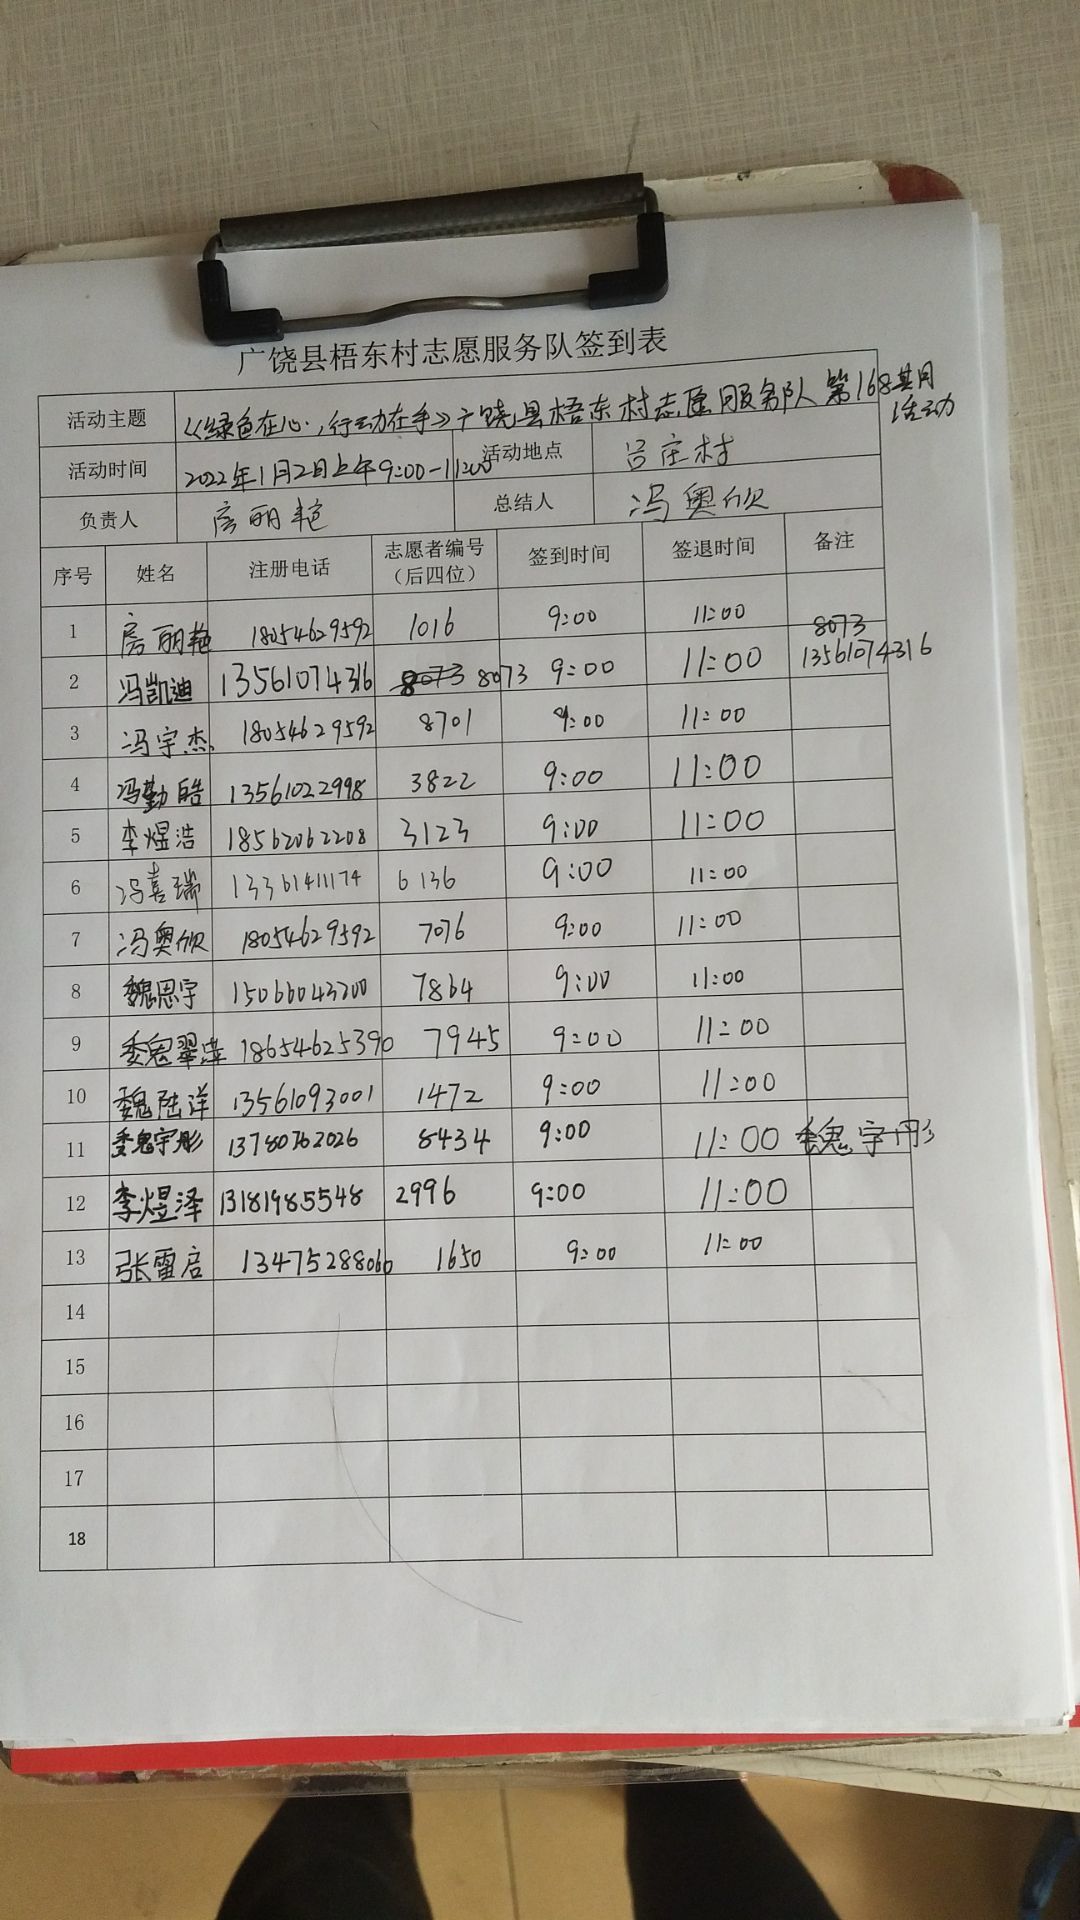 广饶县梧东村志愿服务队签到表
活动主题 《绿色在心,行动在手》广饶县梧东村志愿服务队第168期
活动
活动时间 2022年1月2日上午9:00-11:00 活动地点 吕庄村
负责人 房丽艳 总结人 冯奥欣
序号 姓名 注册电话 志愿者编号（后四位） 签到时间 签退时间 备注
1 房丽艳 18054629592 1016 9:00 11:00 8073
2 冯凯迪 13561074316 8073 8073 9:00 11:00 13561074316
3 冯宇杰 18054629592 8701 9:00 11:00
4 冯勤皓 13561022998 3822 9:00 11:00
5 李煜浩 18562062208 3123 9:00 11:00
6 冯喜瑞 13361411174 6136 9:00 11:00
7 冯奥欣 18054629592 7076 9:00 11:00
8 魏思宇 15066043200 7864 9:00 11:00
9 魏翠 18654625390 7945 9:00 11:00
10 魏陆洋 13561093001 1472 9:00 11:00
11 魏宇彤 13780762026 8434 9:00 11:00 魏宇彤
12 李煜泽 13181985548 2996 9:00 11:00
13 张雷启 13475288060 1650 9:00 11:00
14
15
16
17
18